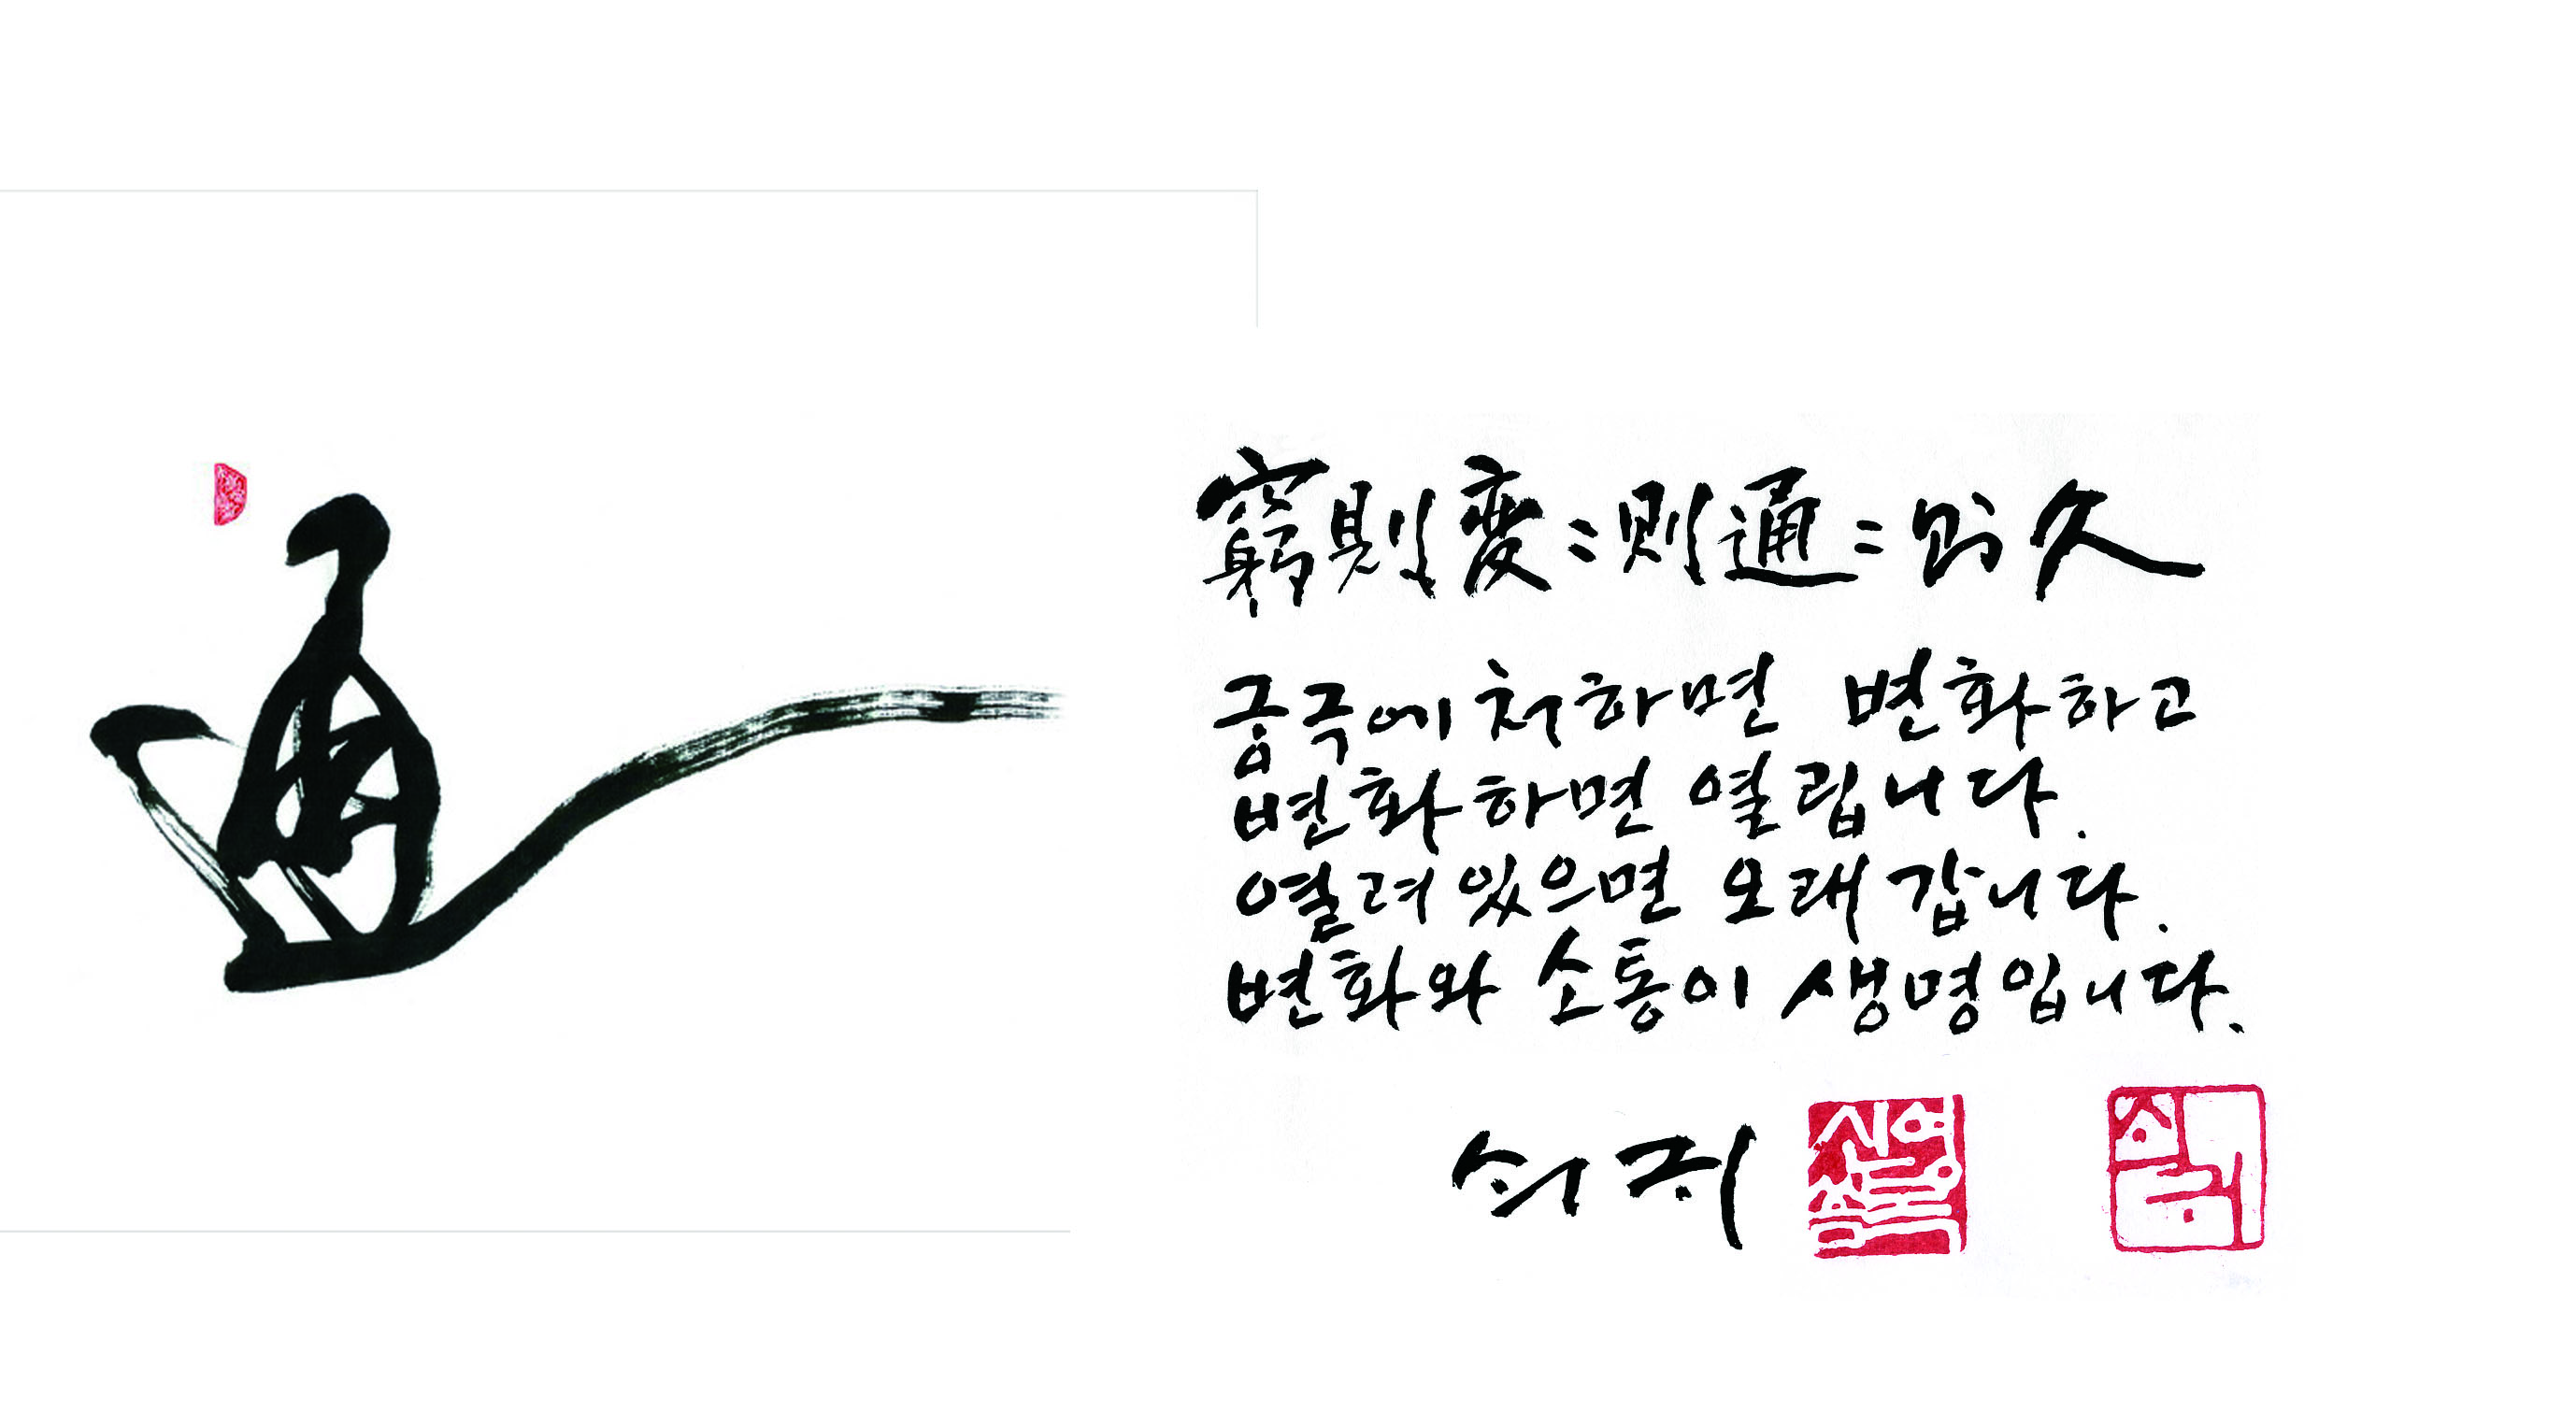 通
窮則変〻則通〻則久
궁극에 처하면 변화하고
변화하면 열립니다.
열려있으면 오래 갑니다.
변화와 소통이 생명입니다.
쇠귀 신영복 쇠귀